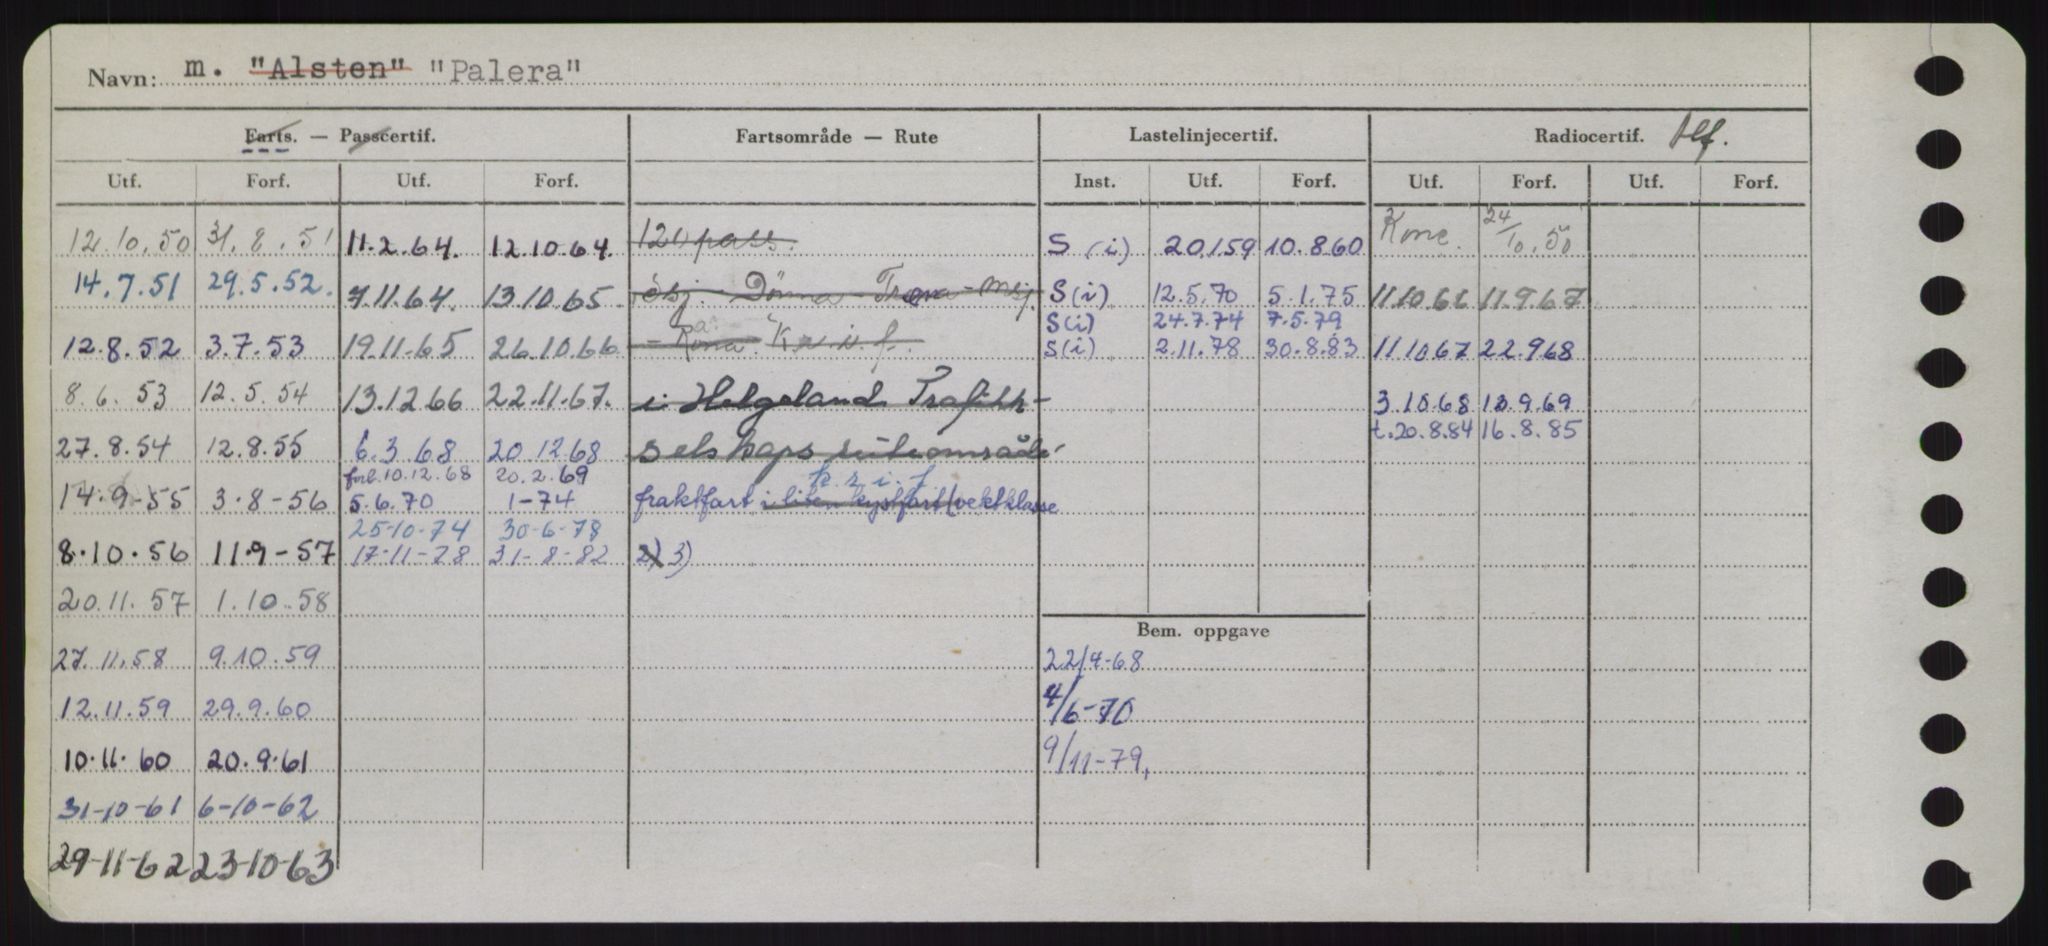 Navn: m. "Alsten" "Palera"
Farts. — Passcertif. Fartsområde — Rute Lastelinjecertif. Radiocertif. tlf.
Utf. Forf. Utf. Forf. Inst. Utf. Forf. Utf. Forf. Utf. Forf.
12.10.50 31.8.51 11.2.64. 12.10.64. 120 pass. S (i) 20.1.59 10.8.60 Konc. 24/10.50
14.7.51 29.5.52. 7.11.64. 13.10.65. Dönna - Træna - S (i) 12.5.70 5.1.75 11.10.66 11.9.67
S (i) 24.7.74 7.5.79
12.8.52 3.7.53 19.11.65 26.10.66 S (i) 2.11.78 30.8.83 11.10.67 22.9.68
8.6.53 12.5.54 13.12.66 22.11.67. i Helgeland Trafikk- 3.10.68 13.9.69
27.8.54 12.8.55 6.3.68 20.12.68 selskaps ruteområde t.20.8.84 16.8.85
forl.10.12.68 20.2.69 k.r.i.f.
14-9-55 3-8-56 5.6.70 1-74 fraktfart i liten kystfart (vektklasse
25-10-74 30-6-78
8.10.56 11.9-57 17-11-78 31-8-82 2) 3)
20.11.57 1.10.58
Bem. oppgave
27.11.58 9.10.59 22/4-68
12.11.59 29.9.60 4/6-70
10.11.60 20.9.61 9/11-79,
31-10-61 6-10-62
29-11-62 23-10-63